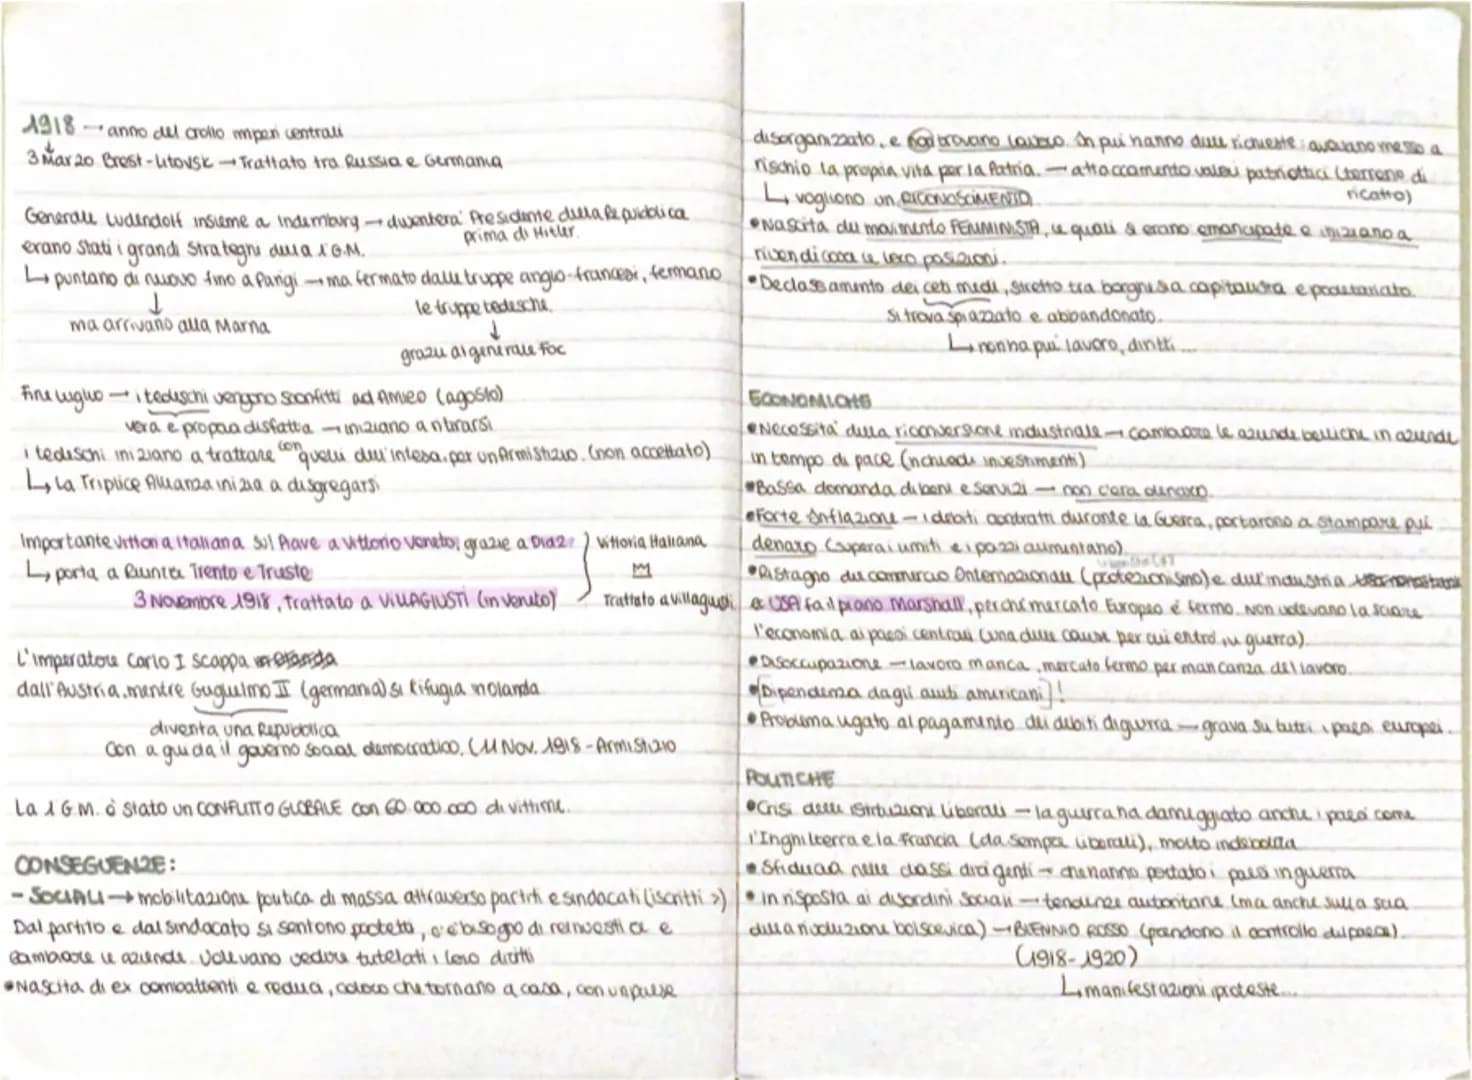 1918 → anno del crollo imperi centrali
3 Marzo Brest-Litovsk → Trattato tra Russia e Germania
Generale Ludendolf insieme a Indemburg → diventera' Presidente della Repubblica
prima di Hitler.
erano stati i grandi strateghi della 1°G.M.
↳ puntano di nuovo fino a Parigi → ma fermato dalle truppe anglo-francesi, fermano
le truppe tedesche.
ma arrivano alla Marna
grazie al generale Foc
Fine luglio → i tedeschi vengono sconfitti ad Amieo (agosto)
vera e propria disfatta → iniziano a ritirarsi
i tedeschi iniziano a trattare con quelli dell'intesa, per un Armistizio. (non accettato)
↳ La Triplice Alleanza inizia a disgregarsi
Importante vittoria italiana sul Piave a Vittorio Veneto, grazie a Diaz.
↳ porta a Riunire Trento e Trieste
3 Novembre 1918, Trattato a VILLAGIUSTI (in Veneto)
Vittoria Italiana
Trattato a villagiusti
L'imperatore Carlo I scappa
dall'Austria, mentre Guglielmo II (germania) si rifugia in olanda
diventa una Repubblica
con a guida il governo social democratico. (11 Nov. 1918 - Armistizio
La 1 G.M. è stato un CONFLITTO GLOBALE con 60 000 000 di vittime.
CONSEGUENZE:
- SOCIALI → mobilitazione politica di massa attraverso partiti e sindacati (iscritti >)
Dal partito e dal sindacato si sentono protetti, c'è bisogno di reinvestire e
cambiare le aziende. Volevano vedere tutelati i loro diritti
• Nascita di ex combattenti e reduci, coloro che tornano a casa, con un paese
disorganizzato, e non trovano lavoro. In pui hanno delle richieste: avevano messo a
rischio la propria vita per la Patria. → attaccamento valori patriottici (terreno di
ricatto)
↳ vogliono un RICONOSCIMENTO
• Nascita del movimento FEMMINISTA, le quali si erano emancipate e iniziano a
rivendicare le loro posizioni.
• Declassamento dei ceti medi, stretto tra borghesia capitalista e proletariato.
si trova spiazzato e abbandonato.
↳ non ha pui lavoro, diritti ...
ECONOMICHE
• Necessita' della riconversione industriale → cambiare le aziende belliche in aziende
in tempo di pace (richiede investimenti)
• Bassa domanda di beni e servizi → non c'era denaro.
• Forte Inflazione → i debiti contratti durante la Guerra, portarono a stampare pui
denaro (supera i limiti e i pozzi aumentano)
• Ristagno del commercio Internazionale (protezionismo) e dell'industria
e USA fa il piano Marshall, perché mercato Europeo è fermo. Non volevano lasciare
l'economia ai paesi centrali (una delle cause per cui entrò in guerra).
• Disoccupazione → lavoro manca, mercato fermo per mancanza del lavoro.
• [Dipendenza dagli aiuti americani]!
• Problema legato al pagamento dei debiti di guerra → grava su tutti i paesi europei.
POLITICHE
• Crisi delle istituzioni liberali → la guerra ha danneggiato anche i paesi come
l'Inghilterra e la Francia (da sempre liberali), molto indebolita
• Sfiducia nelle classi dirigenti → che hanno portato i paesi in guerra
• In risposta ai disordini sociali → tendenze autoritarie (ma anche sulla scia
della rivoluzione bolscevica) → BIENNIO ROSSO (prendono il controllo del paese).
(1918-1920)
↳ manifestazioni, proteste...